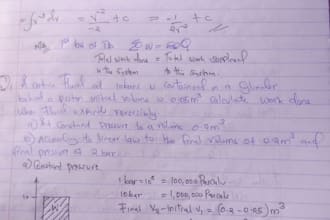 = ∫v⁻³ dv = v⁻²/-2 + c = -1/2v² + c
1st law of Th Σw = ΣQ
Total work done = Total work supplied
in the system to the system.
A certain fluid at is contained in a cylinder
behind a piston initial volume is 0.05m³ calculate work done
when fluid expand reversibly.
a) At constant pressure to a volume 0.2m³
b) According to linear law to the final volume of 0.2m³ and
final pressure of 2 bar.
a) Constant pressure
1 bar = 10⁵ = 100,000 Pascals
10 bar = 1,000,000 Pascals
Final V₂ - initial V₁ = (0.2 - 0.05) m³